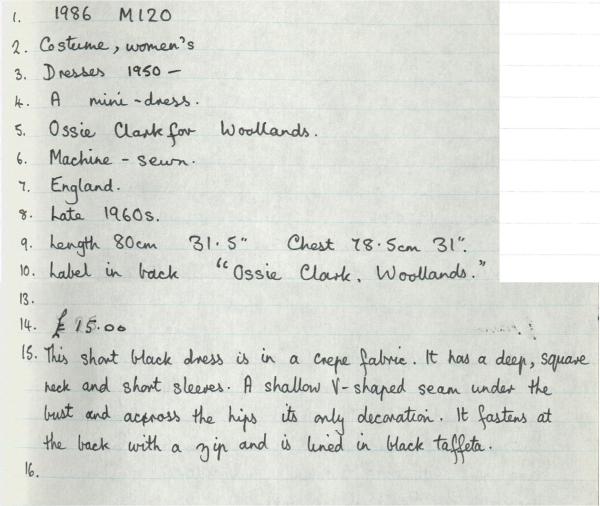 1. 1986 M120
2. Costume, women's
3. Dresses 1950 –
4. A mini-dress.
5. Ossie Clark for Woollands.
6. Machine - sewn.
7. England.
8. Late 1960s.
9. Length 80cm 31.5" Chest 78.5cm 31".
10. Label in back "Ossie Clark, Woollands."
13.
14. £15.00
15. This short black dress is in a crepe fabric. It has a deep, square
neck and short sleeves. A shallow V-shaped seam under the
bust and accross the hips its only decoration. It fastens at
the back with a zip and is lined in black taffeta.
16.